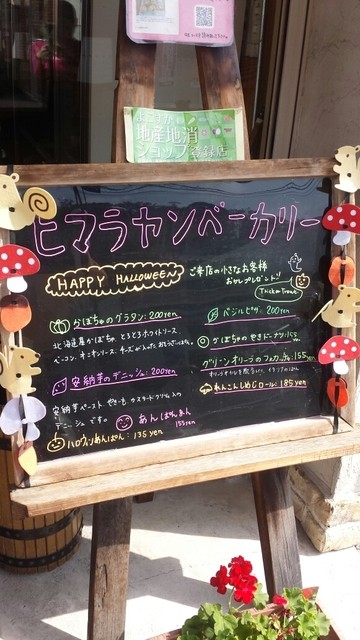 地産地消
ショップ登録店
ヒマラヤンベーカリー
HAPPY HALLOWEEN
ご来店の小さなお客様
おかしプレゼント!
Trick or Treat
かぼちゃのグラタン:200yen
北海道産かぼちゃ とろとろホワイトソース
ベーコン、オニオンソース、チーズが入った
安納芋のデニッシュ:200yen
安納芋ペースト、やき芋、カスタードクリーム入の
デニッシュです。
あんぱんまん
155yen
ハロウィンあんぱん:135yen
バジルピザ:200yen
かぼちゃのやきドーナツ:155
グリーンオリーブのフォカッチャ:155yen
れんこんしめじロール:185yen